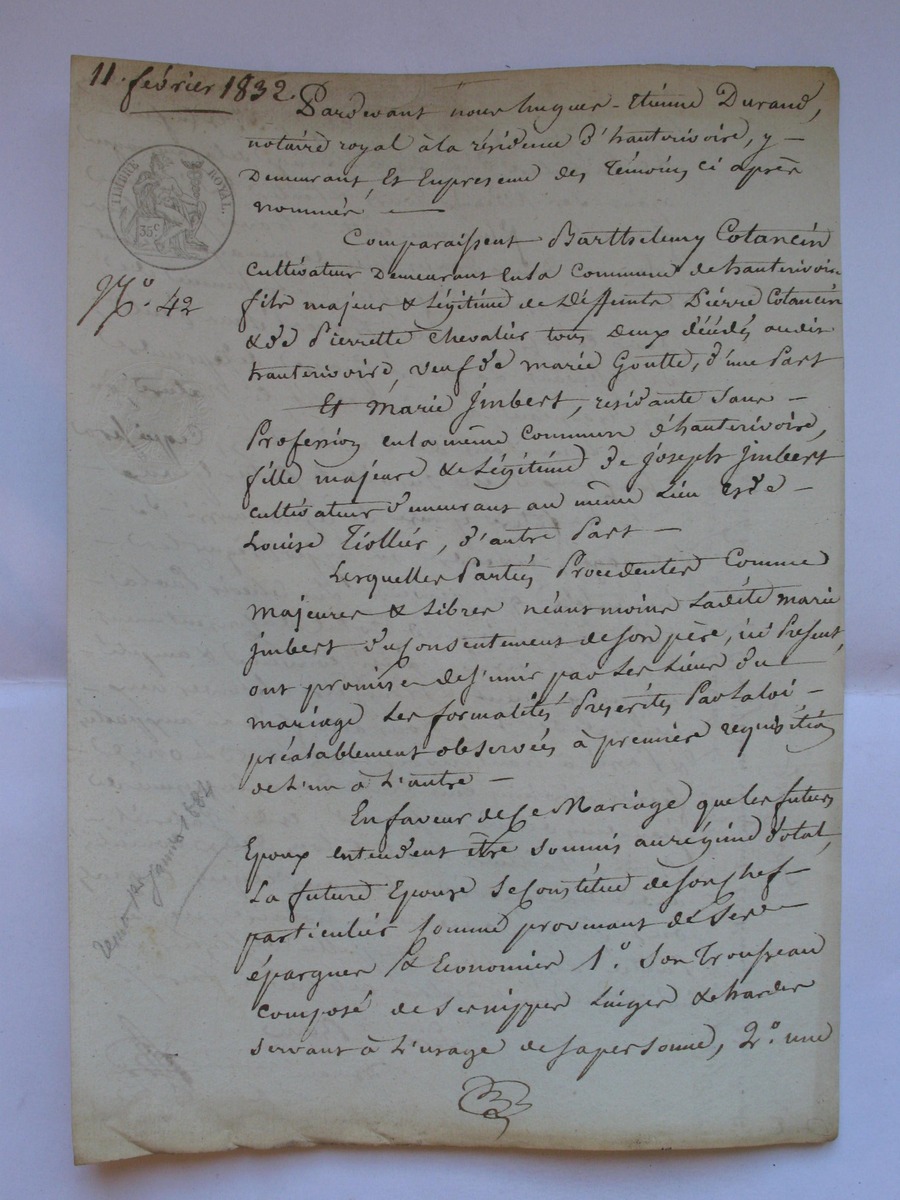 11. février 1832.
Pardevant nous hugues-Etienne Durand,
notaire royal à la résidence d'hauterivoire, y
Demeurant, Et Enpresence des Témoins ci après
nommés —
TIMBRE ROYAL.
35c.
N.o 42
Comparaissent Barthelemy Cotancin
Cultivateur Demeurant enla Commune de hauterivoire
fils majeur & Légitime de Deffunts Pierre Cotancin
& de Pierrette Chevalier tous deux décédés audit
hauterivoire, veuf de marie Goutte, d'une Part
Et Marie jmbert, résidante sans
Profession enla même Commune d'hauterivoire,
fille majeure & Légitime de joseph jmbert
cultivateur demeurant au même Lieu & de
Louise Tiollier, d'autre Part —
Lesquelles Parties Procedentes Comme
majeures & Libres néantmoins Ladite marie
jmbert du Consentement de son père, ici Present,
ont promis de s'unir par Les Liens du
mariage Les formalités Prescrites Par La loi
préalablement observées à première requisition
de L'un à L'autre —
En faveur de Ce Mariage que les futurs
Epoux entendent être soumis au régime dotal,
La future Epouse se Constitue de son chef
particulier Comme provenant de Ses
épargnes & Economies 1.o Son Trousseau
Composé de Ses nippes Linges & hardes
servant à L'usage de sa personne, 2.o une
janvier 1884